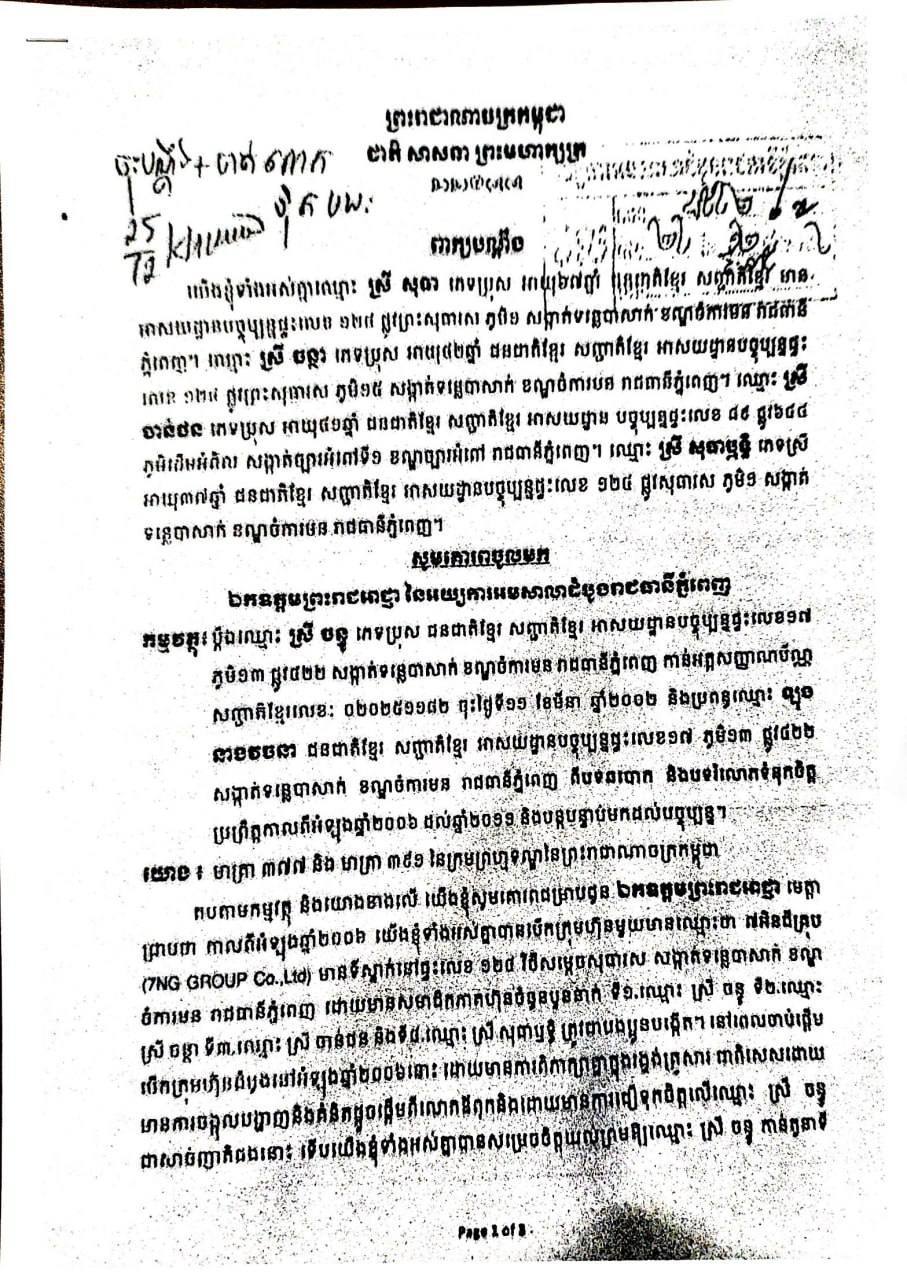 ព្រះរាជាណាចក្រកម្ពុជា
ជាតិ សាសនា ព្រះមហាក្សត្រ
ពាក្យបណ្តឹង
យើងខ្ញុំទាំងអស់គ្នាឈ្មោះ ស្រី សុធា ភេទប្រុស អាយុ៦៧ឆ្នាំ ជនជាតិខ្មែរ សញ្ជាតិខ្មែរ មាន
អាសយដ្ឋានបច្ចុប្បន្នផ្ទះលេខ ១២៨ ផ្លូវព្រះសុធារស ភូមិ១ សង្កាត់ទន្លេបាសាក់ ខណ្ឌចំការមន រាជធានី
ភ្នំពេញ។ ឈ្មោះ ស្រី ចន្ថា ភេទប្រុស អាយុ៤២ឆ្នាំ ជនជាតិខ្មែរ សញ្ជាតិខ្មែរ អាសយដ្ឋានបច្ចុប្បន្នផ្ទះ
លេខ ១២៨ ផ្លូវព្រះសុធារស ភូមិ១៥ សង្កាត់ទន្លេបាសាក់ ខណ្ឌចំការមន រាជធានីភ្នំពេញ។ ឈ្មោះ ស្រី
ចាន់ថន ភេទប្រុស អាយុ៤១ឆ្នាំ ជនជាតិខ្មែរ សញ្ជាតិខ្មែរ អាសយដ្ឋាន បច្ចុប្បន្នផ្ទះលេខ ៨៩ ផ្លូវ៦៨៤
ភូមិដើមអំពិល សង្កាត់ច្បារអំពៅទី១ ខណ្ឌច្បារអំពៅ រាជធានីភ្នំពេញ។ ឈ្មោះ ស្រី សុធាឫទ្ធី ភេទស្រី
អាយុ៣៧ឆ្នាំ ជនជាតិខ្មែរ សញ្ជាតិខ្មែរ អាសយដ្ឋានបច្ចុប្បន្នផ្ទះលេខ ១២៨ ផ្លូវសុធារស ភូមិ១ សង្កាត់
ទន្លេបាសាក់ ខណ្ឌចំការមន រាជធានីភ្នំពេញ។
សូមគោរពចូលមក
ឯកឧត្តមព្រះរាជអាជ្ញា នៃអយ្យការអមសាលាដំបូងរាជធានីភ្នំពេញ
កម្មវត្ថុ៖ ប្តឹងឈ្មោះ ស្រី ចន្ធូ ភេទប្រុស ជនជាតិខ្មែរ សញ្ជាតិខ្មែរ អាសយដ្ឋានបច្ចុប្បន្នផ្ទះលេខ១៧
ភូមិ១៣ ផ្លូវ៤២២ សង្កាត់ទន្លេបាសាក់ ខណ្ឌចំការមន រាជធានីភ្នំពេញ កាន់អត្តសញ្ញាណប័ណ្ណ
សញ្ជាតិខ្មែរលេខ: ០២០២៥១១៨២ ចុះថ្ងៃទី១១ ខែមីនា ឆ្នាំ២០០២ និងប្រពន្ធឈ្មោះ
ជនជាតិខ្មែរ សញ្ជាតិខ្មែរ អាសយដ្ឋានបច្ចុប្បន្នផ្ទះលេខ១៧ ភូមិ១៣ ផ្លូវ៤២២
សង្កាត់ទន្លេបាសាក់ ខណ្ឌចំការមន រាជធានីភ្នំពេញ ពីបទឆបោក និងបទរំលោភទំនុកចិត្ត
ប្រព្រឹត្តកាលពីអំឡុងឆ្នាំ២០០៦ ដល់ឆ្នាំ២០១១ និងបន្តបន្ទាប់មកដល់បច្ចុប្បន្ន។
យោង ៖ មាត្រា ៣៧៧ និង មាត្រា ៣៩១ នៃក្រមព្រហ្មទណ្ឌនៃព្រះរាជាណាចក្រកម្ពុជា
តបតាមកម្មវត្ថុ និងយោងខាងលើ យើងខ្ញុំសូមគោរពជម្រាបជូន ឯកឧត្តមព្រះរាជអាជ្ញា មេត្តា
ជ្រាបថា កាលពីអំឡុងឆ្នាំ២០០៦ យើងខ្ញុំទាំងអស់គ្នាបានបើកក្រុមហ៊ុនមួយមានឈ្មោះថា ៧អិនជីគ្រុប
(7NG GROUP Co.,Ltd) មានទីស្នាក់នៅផ្ទះលេខ ១២៨ វិថីសម្តេចសុធារស សង្កាត់ទន្លេបាសាក់ ខណ្ឌ
ចំការមន រាជធានីភ្នំពេញ ដោយមានសមាជិកភាគហ៊ុនចំនួនបួននាក់ ទី១.ឈ្មោះ ស្រី ចន្ធូ ទី២.ឈ្មោះ
ស្រី ចន្ថា ទី៣.ឈ្មោះ ស្រី ចាន់ថន និងទី៤.ឈ្មោះ ស្រី សុធាឫទ្ធី ត្រូវជាបងប្អូនបង្កើត។ នៅពេលចាប់ផ្តើម
បើកក្រុមហ៊ុនដំបូងនៅអំឡុងឆ្នាំ២០០៦នោះ ដោយមានការពិភាក្សាគ្នាក្នុងរង្វង់គ្រួសារ ជាពិសេសដោយ
មានការចង្អុលបង្ហាញនិងគំនិតផ្តួចផ្តើមពីលោកឪពុកនិងដោយមានការជឿទុកចិត្តលើឈ្មោះ ស្រី ចន្ធូ
ជាសាច់ញាតិផងនោះ ទើបយើងខ្ញុំទាំងអស់គ្នាបានសម្រេចចិត្តយល់ព្រមឱ្យឈ្មោះ ស្រី ចន្ធូ កាន់តួនាទី
Page 1 of 3